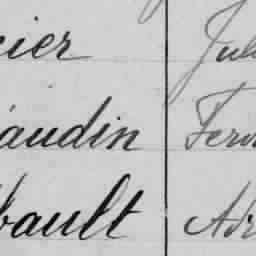 cier Jul
audin Fern
bault Adr